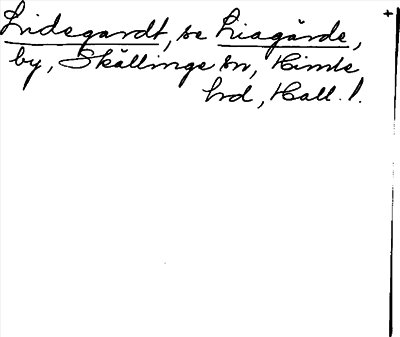 Lidegardt, se Liagärde,
by, Skällinge sn, Himle
hrd, Hall. l.